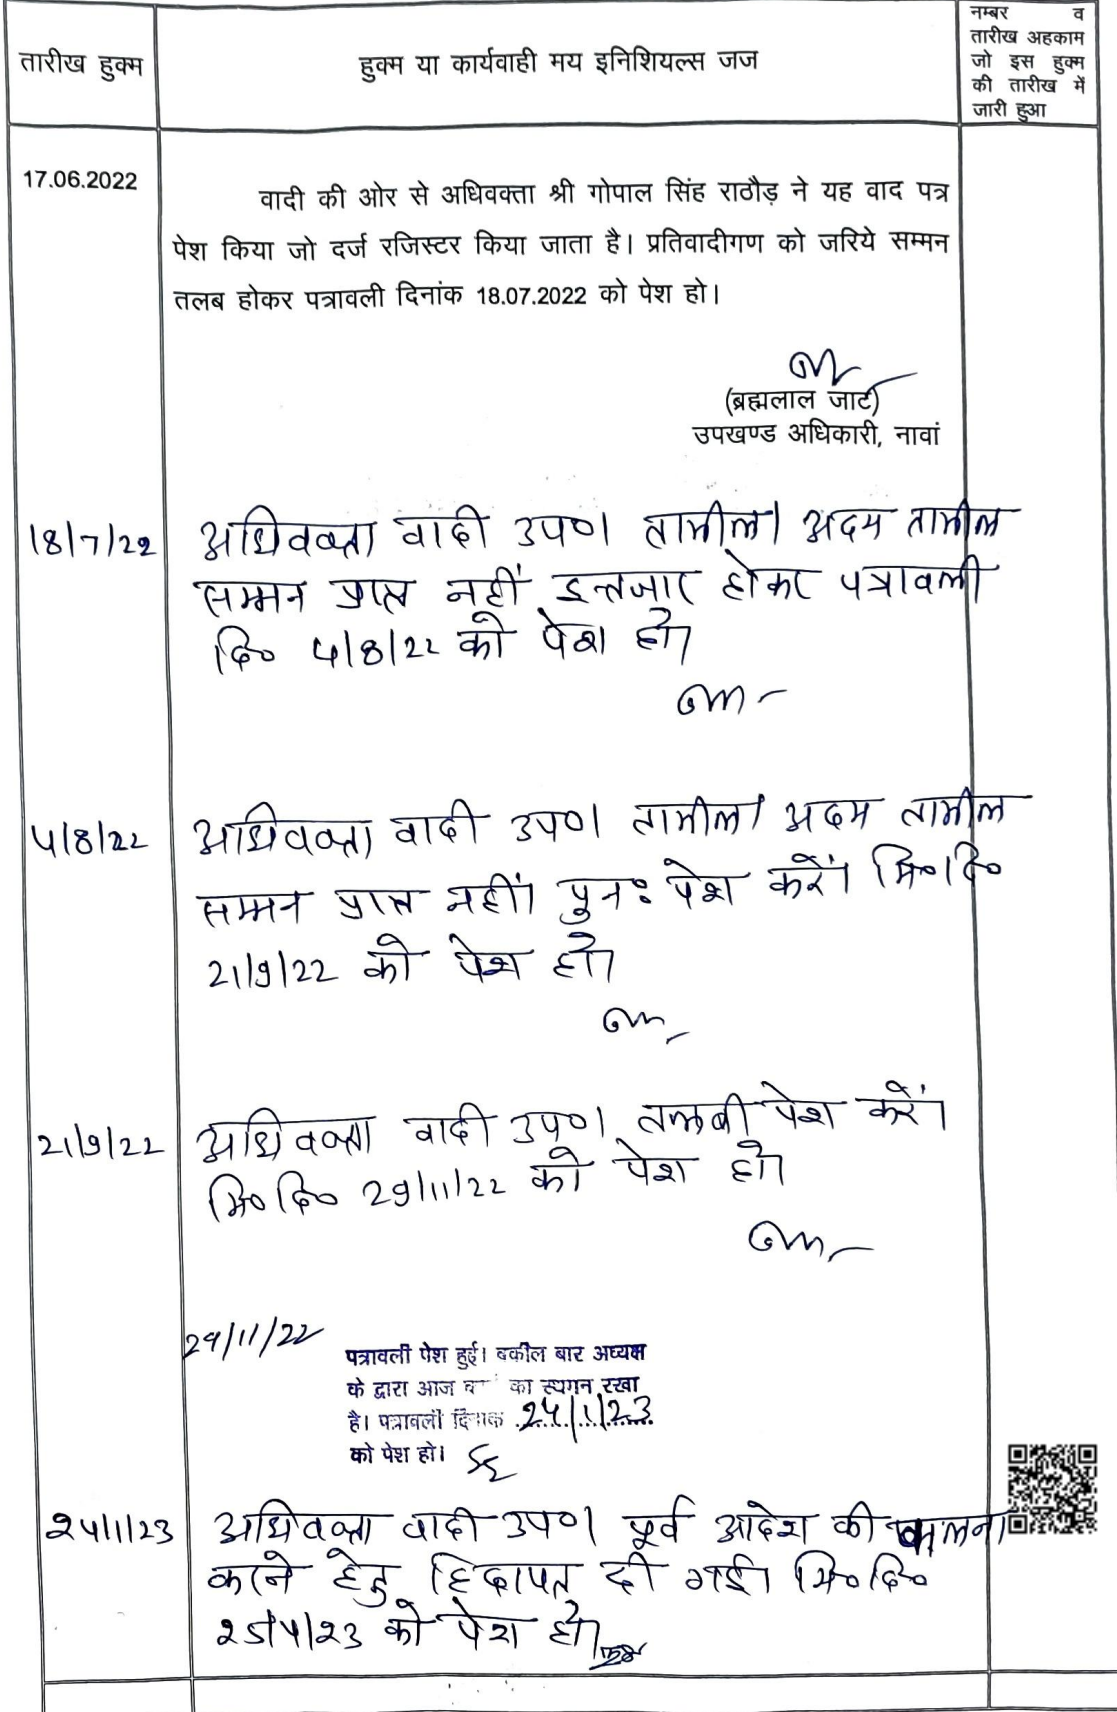 तारीख हुक्म
हुक्म या कार्यवाही मय इनिशियल्स जज
नम्बर व
तारीख अहकाम
जो इस हुक्म
की तारीख में
जारी हुआ
17.06.2022
वादी की ओर से अधिवक्ता श्री गोपाल सिंह राठौड़ ने यह वाद पत्र
पेश किया जो दर्ज रजिस्टर किया जाता है। प्रतिवादीगण को जरिये सम्मन
तलब होकर पत्रावली दिनांक 18.07.2022 को पेश हो।
(ब्रह्मलाल जाट)
उपखण्ड अधिकारी, नावां
18/7/22 अधिवक्ता वादी उप०। तामील। अदम तामील
सम्मन प्राप्त नहीं इन्तजार होकर पत्रावली
दि० 4/8/22 को पेश हो।
4/8/22 अधिवक्ता वादी उप०। तामील। अदम तामील
सम्मन प्राप्त नहीं। पुनः पेश करें। मि०दि०
21/9/22 को पेश हो।
21/9/22 अधिवक्ता वादी उप०। तलबी पेश करें।
मि०दि० 29/11/22 को पेश हो।
29/11/22
पत्रावली पेश हुई। वकील बार अध्यक्ष
के द्वारा आज का स्थगन रखा
है। पत्रावली दिनांक 24/1/23
को पेश हो।
24/1/23 अधिवक्ता वादी उप०। पूर्व आदेश की पालना
करने हेतु हिदायत दी गई। मि०दि०
25/4/23 को पेश हो।